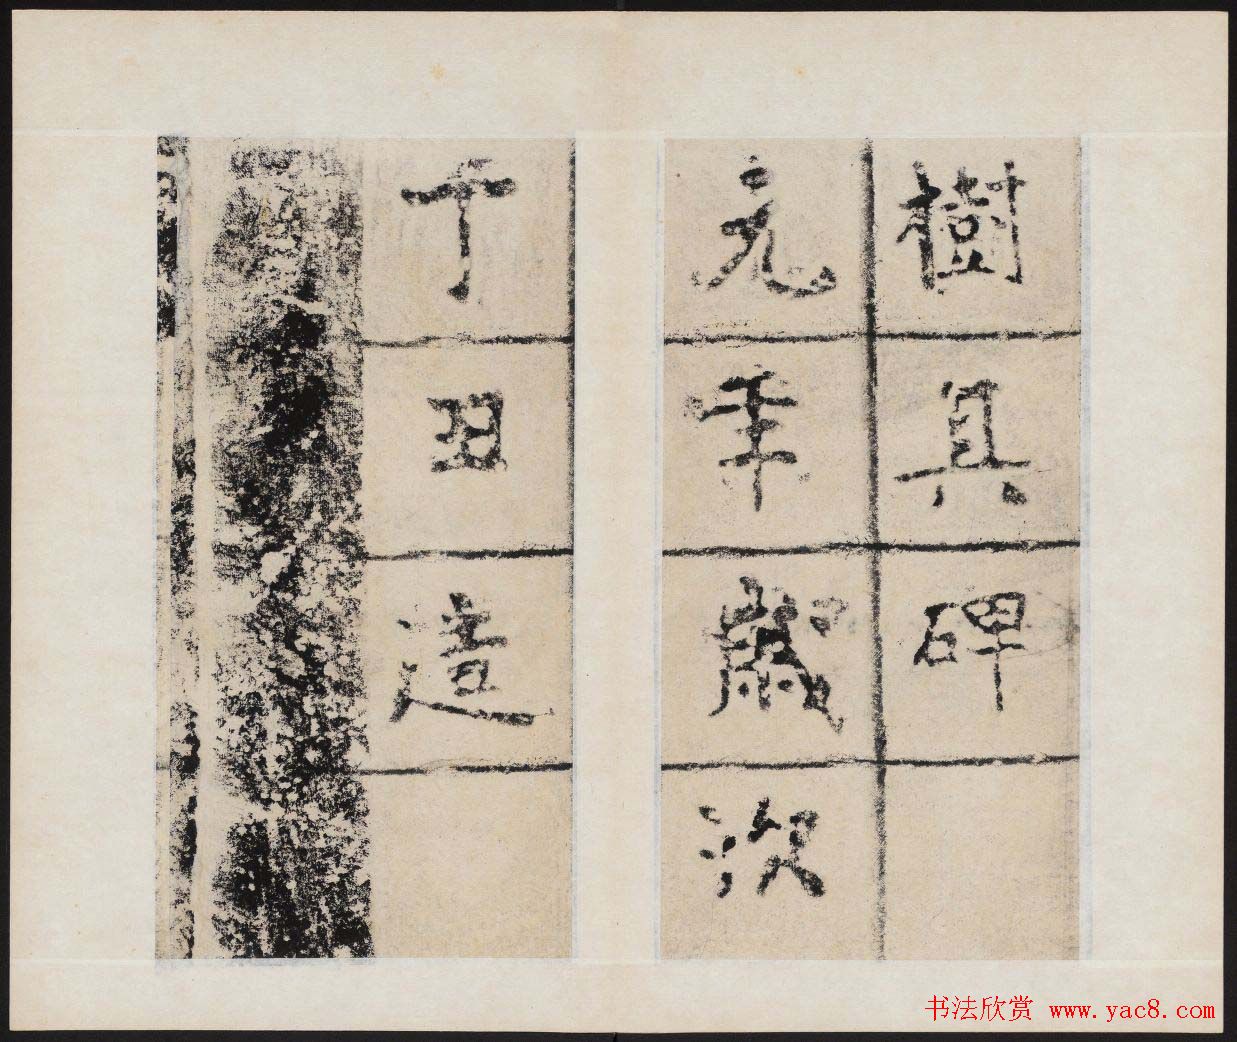 樹其碑
元年歲次
丁丑造
书法欣赏 www.yac8.com